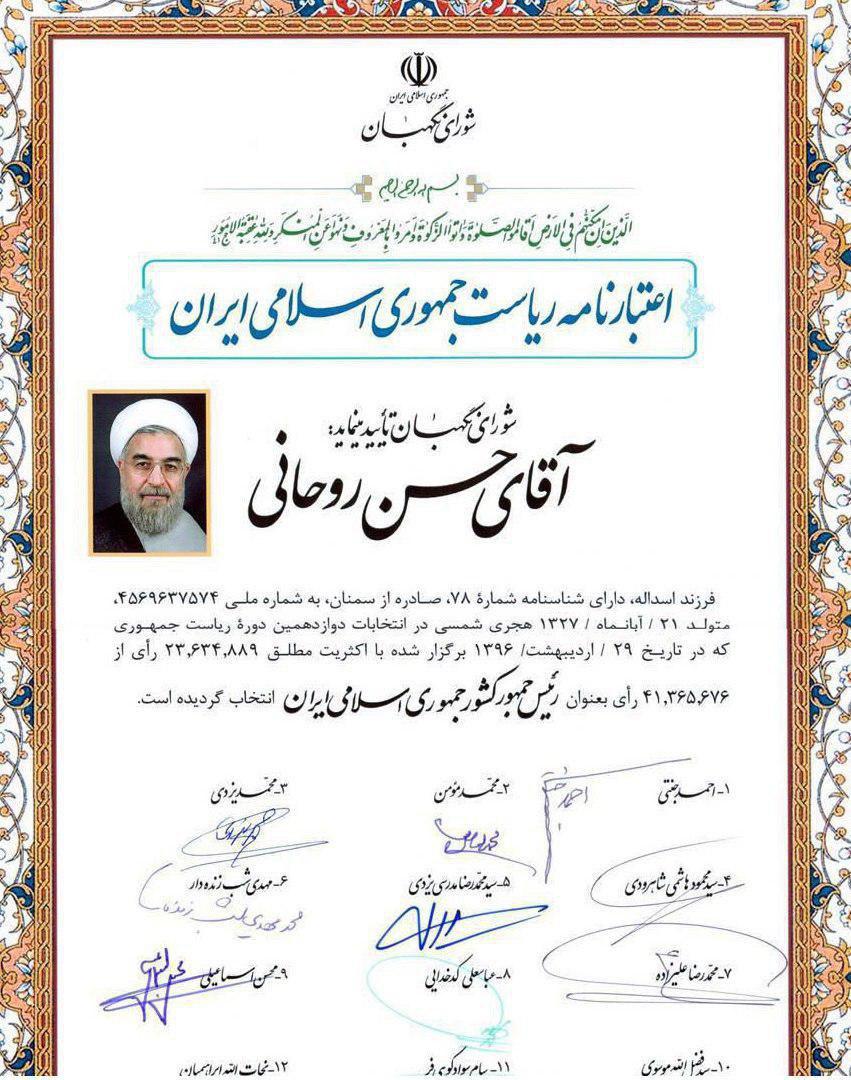 جمهوری اسلامی ایران
شورای نگهبان
بسم الله الرحمن الرحیم
اَلَّذینَ اِن مَکَّنّاهُم فِی الاَرضِ اَقامُوا الصَّلوةَ وَ اتَوُا الزَّکوةَ وَ اَمَروا بِالمَعروفِ وَ نَهَوا عَنِ المُنکَرِ وَ لِلّهِ عاقِبَةُ الاُمورِ
اعتبارنامه ریاست جمهوری اسلامی ایران
شورای نگهبان تأیید مینماید:
آقای حسن روحانی
فرزند اسداله، دارای شناسنامه شمارۀ ۷۸، صادره از سمنان، به شماره ملی ۴۵۶۹۶۳۷۵۷۴،
متولد ۲۱ / آبانماه / ۱۳۲۷ هجری شمسی در انتخابات دوازدهمین دورۀ ریاست جمهوری
که در تاریخ ۲۹ / اردیبهشت/ ۱۳۹۶ برگزار شده با اکثریت مطلق ۲۳,۶۳۴,۸۸۹ رأی از
۴۱,۳۶۵,۶۷۶ رأی بعنوان رئیس جمهور کشور جمهوری اسلامی ایران انتخاب گردیده است.
۱- احمد جنتی ۲- محمد مؤمن ۳- محمد یزدی
۴- سید محمود هاشمی شاهرودی ۵- سید محمدرضا مدرسی یزدی ۶- مهدی شب زنده دار
۷- محمدرضا علیزاده ۸- عباسعلی کدخدایی ۹- محسن اسماعیلی
۱۰- سید فضل الله موسوی ۱۱- سام سوادکوهی فر ۱۲- نجات الله ابراهیمیان